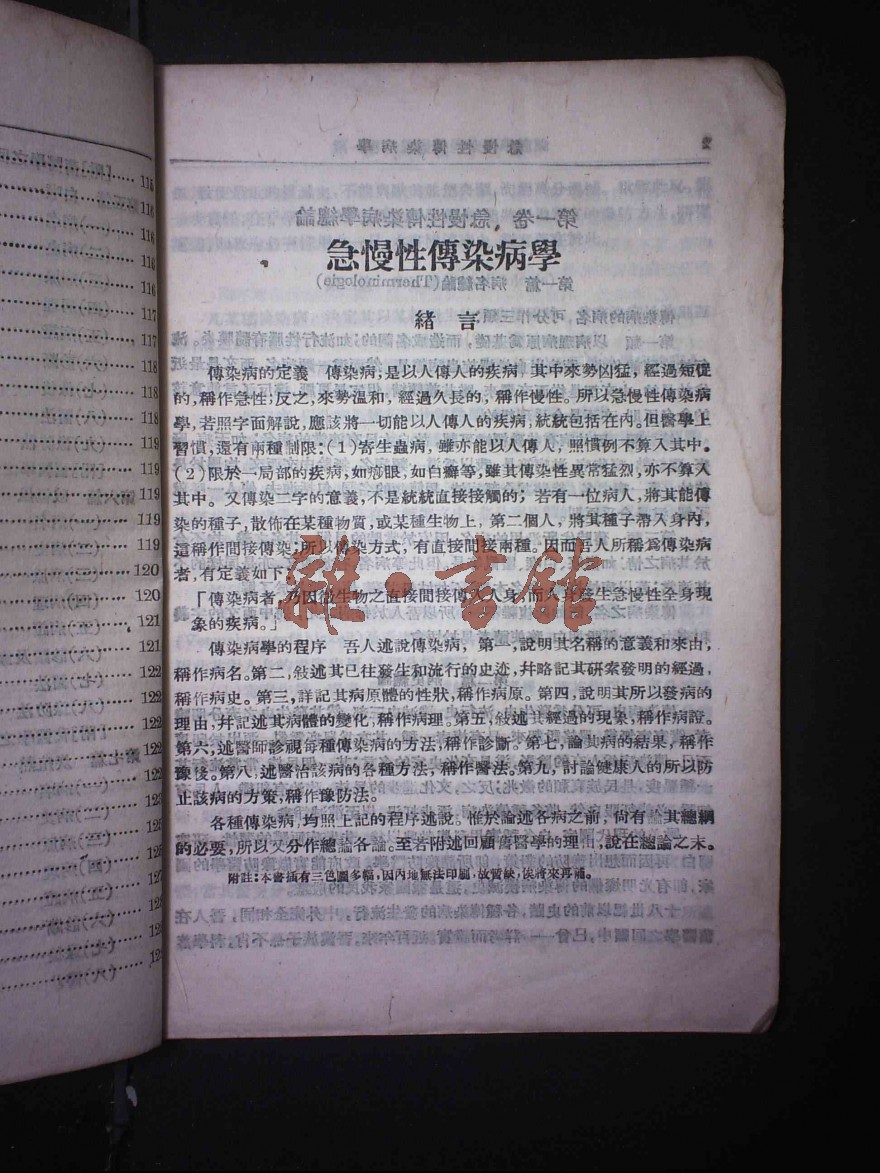 急慢性傳染病學
緒言
傳染病的定義　傳染病,是以人傳人的疾病,其中來勢凶猛,經過短促
的,稱作急性;反之,來勢溫和,經過久長的,稱作慢性。所以急慢性傳染病
學,若照字面解說,應該將一切能以人傳人的疾病,統統包括在內。但醫學上
習慣,還有兩種制限:(1)寄生蟲病,雖亦能以人傳人,照慣例不算入其中。
(2)限於一局部的疾病,如痧眼,如白癬等,雖其傳染性異常猛烈,亦不算入
其中。又傳染二字的意義,不是統統直接接觸的;若有一位病人,將其能傳
染的種子,散佈在某種物質,或某種生物上,第二個人,將其種子帶入身內,
這稱作間接傳染;所以傳染方式,有直接間接兩種。因而吾人所稱爲傳染病
者,有定義如下:
「傳染病者,乃因微生物之直接間接傳入人身,而人身發生急慢性全身現
象的疾病。」
傳染病學的程序　吾人述說傳染病,第一,說明其名稱的意義和來由,
稱作病名。第二,敍述其已往發生和流行的史迹,幷略記其研索發明的經過,
稱作病史。第三,詳記其病原體的性狀,稱作病原。第四,說明其所以發病的
理由,幷記述其病體的變化,稱作病理。第五,敍述其經過的現象,稱作病證。
第六,述醫師診視每種傳染病的方法,稱作診斷。第七,論其病的結果,稱作
豫後。第八,述醫治該病的各種方法,稱作醫法。第九,討論健康人的所以防
止該病的方策,稱作豫防法。
各種傳染病,均照上記的程序述說。惟於論述各病之前,尙有論其總綱
的必要,所以又分作總論各論。至若附述回顧舊醫學的理由,說在總論之末。
附註:本書插有三色圖多幅,因內地無法印刷,故暫缺,俟將來再補。
雜·書館
116
116
116
116
117
117
118
118
118
118
119
119
119
119
120
120
121
121
122
122
122
122
122